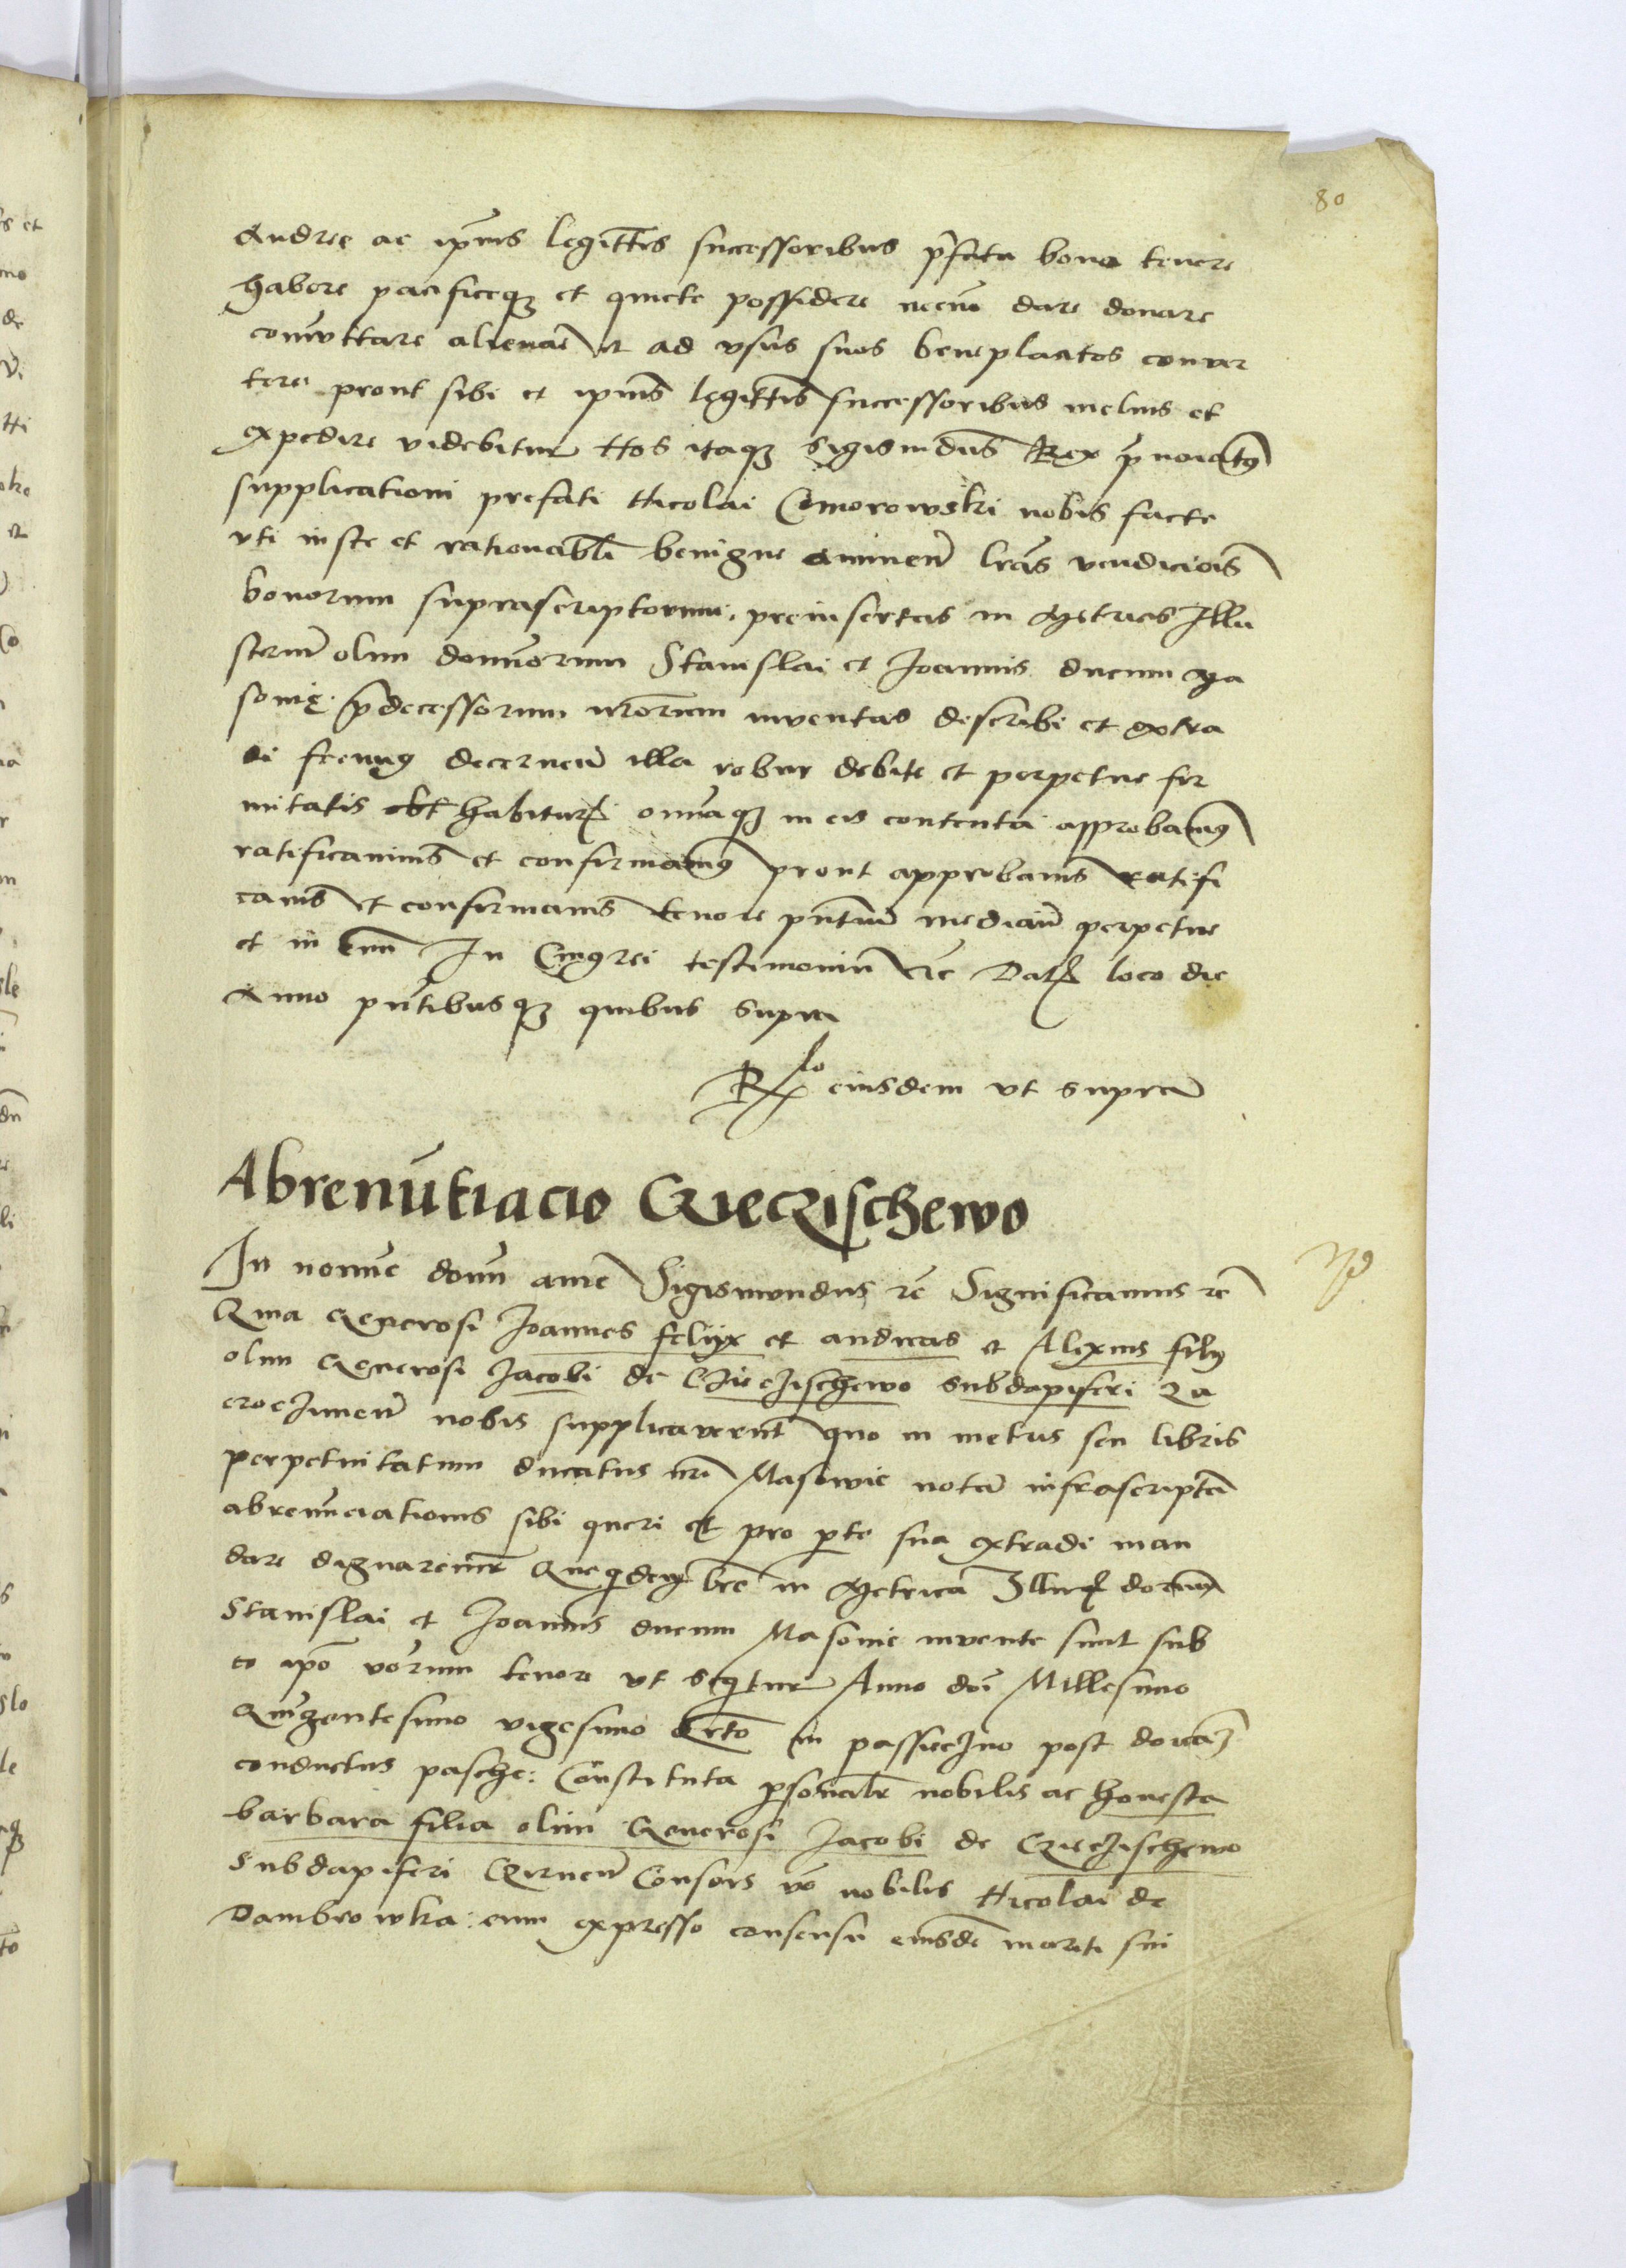 80
Andree ac ipius legittis successoribus pfata bona tenere
habere pacificeqз et quiete possidere necnō dare donare
comuttare alienare et ad vsus suos beneplacitos conver
tere prout sibi et ipius legittis successoribus melius et
expedire videbitur Nos itaqз Sigismdus Rex pnoiatus
supplicationi prefati Nicolai Comorowski nobis facte
vti iuste et rationabli benigne annuen lras vendiciois
bonorum suprascriptorum preinsertas in Metrices Illu
strium olim domiorum Stanislai et Joannis ducum Ma
sovię pdecessorum nrorum inventas describi et extra
di fecimus decernen illa robur debite et perpetue fir
mitatis obt habitur omiaqз in eis contenta approbamus
ratificamus et confirmamus prout approbams ratifi
cams et confirmams tenore pntium median perpetue
et in evm In Cuius rei testimoniu etc Dat loco die
Anno pntibusqз quibus supra
Rlo eiusdem vt supra
Abrenutiacio Czieczischewo
In nomie domi ame Sigismundus etc Significamus etc
Quia Generosi Joannes feliyx et andreas et Alexius filij
olim Generosi Jacobi de Czieczischewo Subdapiferi Za
croczimen nobis supplicaverut quo in metris seu libris
perpetuitatum ducatus nri Masowie nota infrascripta
abrenuciationis sibi queri et pro pte sua extradi man
dare dignaremr Que qdem lre in Metrica Illur dorum
Stanislai et Joannis ducum Masovie invente sunt sub
eo ipo verum tenore vt sequtur Anno doi Millesimo
Quigentesimo vigesimo qrto in passieczno post doica
conductus pasche: Constituta psonalr nobilis ac honesta
barbara filia olim Generosi Jacobi de Czieczischewo
Subdapiferi Czirnen Consors vo nobilis Nicolai de
Dambrowka: cum expresso consensu eiusde mariti sui